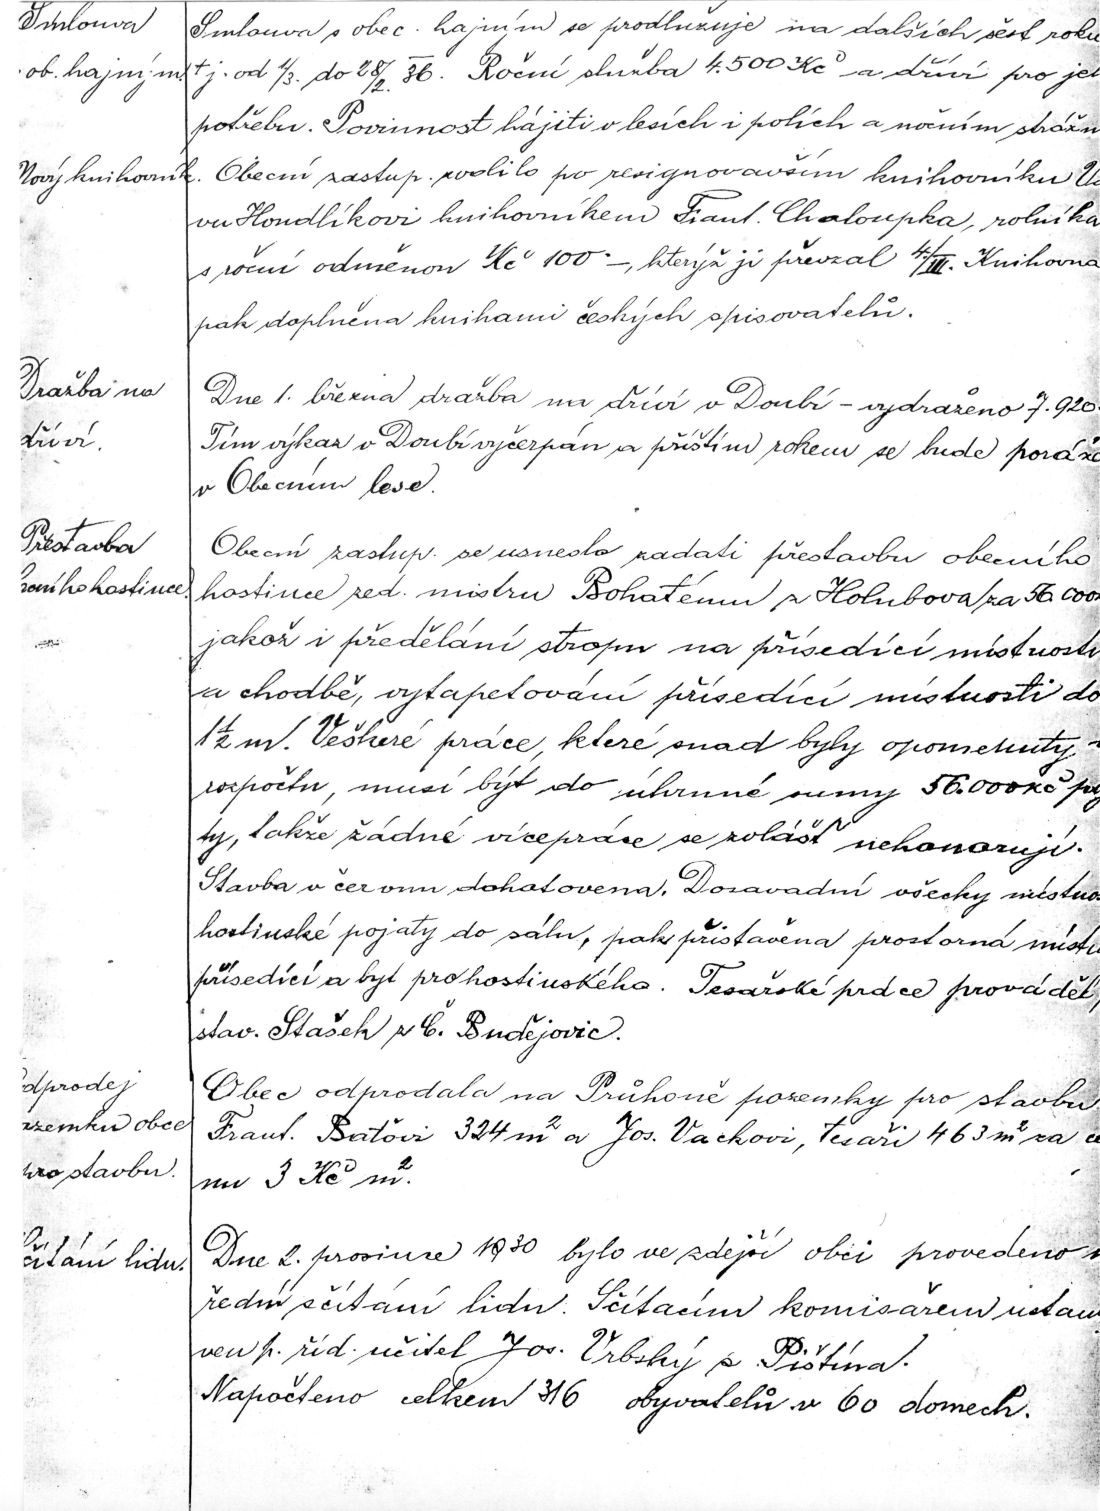 Smlouva
ob. hajným
Smlouva s obec. hajným se prodlužuje na dalších šest roků
t j. od 1/3. do 28/2. 36. Roční služba 4.500 Kč a dříví pro jeh
potřebu. Povinnost hájiti v lesích i polích a nočním strážn
Nový knihovník.
Obecní zastup. zvolilo po resignovavším knihovníku Vá
vu Hondlíkovi knihovníkem Frant. Chaloupka, rolníka
s roční odměnou Kč 100·–, kterýž ji převzal 4/III. Knihovna
pak doplněna knihami českých spisovatelů.
Dražba na
dříví.
Dne 1. března dražba na dříví v Doubí – vydraženo 7.920·
Tím výkaz v Doubí vyčerpán a příštím rokem se bude poráže
v Obecním lese.
Přestavba
hostince.
Obecní zastup. se usneslo zadati přestavbu obecního
hostince zed. mistru Bohatému z Holubova za 56.000
jakož i předělání stropu na přísedící místnosti
a chodbě, vytapetování přísedící místnosti do
1½ m. Veškeré práce, které snad byly opomenuty v
rozpočtu, musí býť do úhrnné sumy 56.000 Kč poj
ty, takže žádné vícepráce se zvlášť nehonorují.
Stavba v červnu dohotovena. Dosavadní všecky místno
hostinské pojaty do sálu, pak přistavěna prostorná míst
přísedící a byt pro hostinského. Tesařské práce prováděl,
stav. Stašek z Č. Budějovic.
dprodej
zemku obce
pro stavbu.
Obec odprodala na Průhoně pozemky pro stavbu
Frant. Baťovi 324 m² a Jos. Vachovi, tesaři 463 m² za ce
nu 3 Kč m².
čítání lidu.
Dne 2. prosince 1930 bylo ve zdejší obci provedeno ú
řední sčítání lidu. Sčítacím komisařem ustan
ven p. říd. učitel Jos. Vrbský z Pištína.
Napočteno celkem 316 obyvatelů v 60 domech.